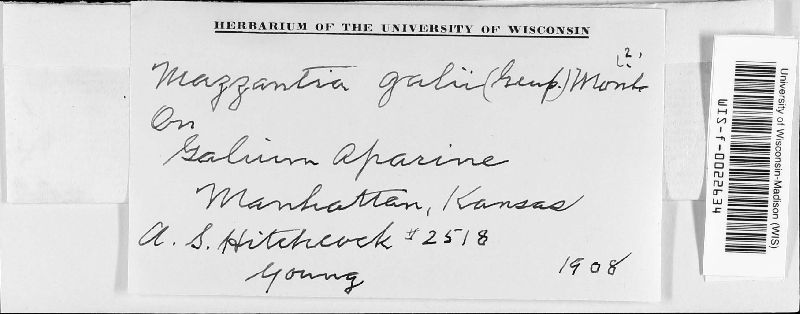 HERBARIUM OF THE UNIVERSITY OF WISCONSIN
Mazzantia galii (Guep.) Mont
On
Galium Aparine
Manhattan, Kansas
A. S. Hitchcock #2518
Young 1908
University of Wisconsin-Madison (WIS)
WIS-f-0022634